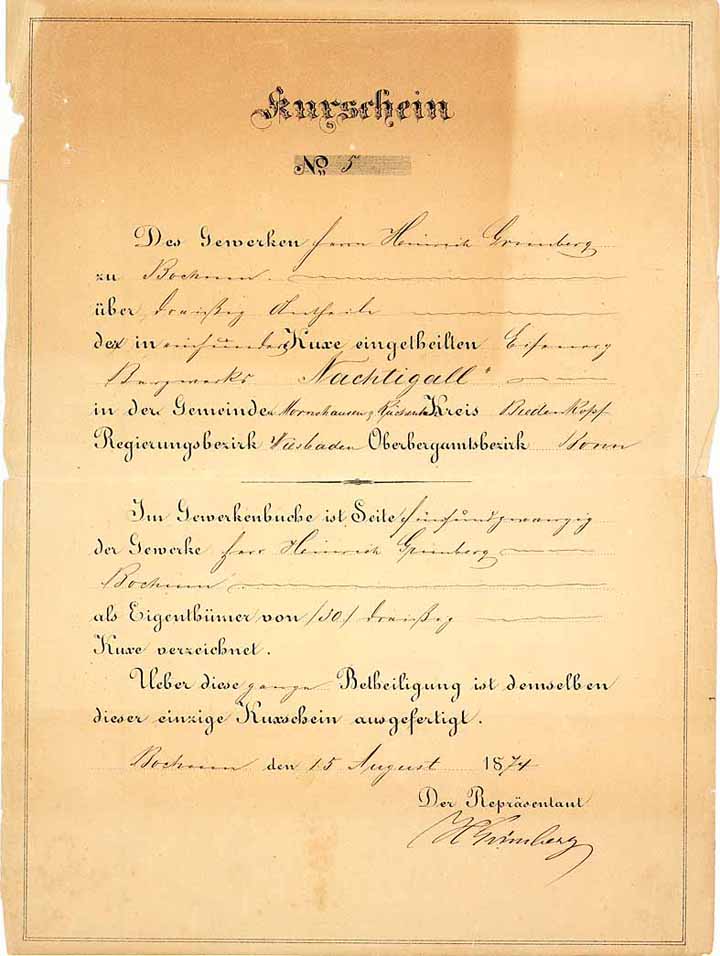 Kuxschein
No 5
Des Gewerken Herrn Heinrich Grünberg
zu Bochum
über dreißig Antheile
der in einhundert Kuxe eingetheilten Eisenerz
Bergwerks "Nachtigall"
in der Gemeinden Mornshausen, Kreis Biedenkopf
Regierungsbezirk Wiesbaden Oberbergamtsbezirk Bonn
Im Gewerkenbuche ist Seite fünfundzwanzig
der Gewerke Herr Heinrich Grünberg
Bochum
als Eigenthümer von /30/ dreißig
Kuxe verzeichnet.
Ueber diese ganze Betheiligung ist demselben
dieser einzige Kuxschein ausgefertigt.
Bochum den 15 August 1874
Der Repräsentant
H Grünberg